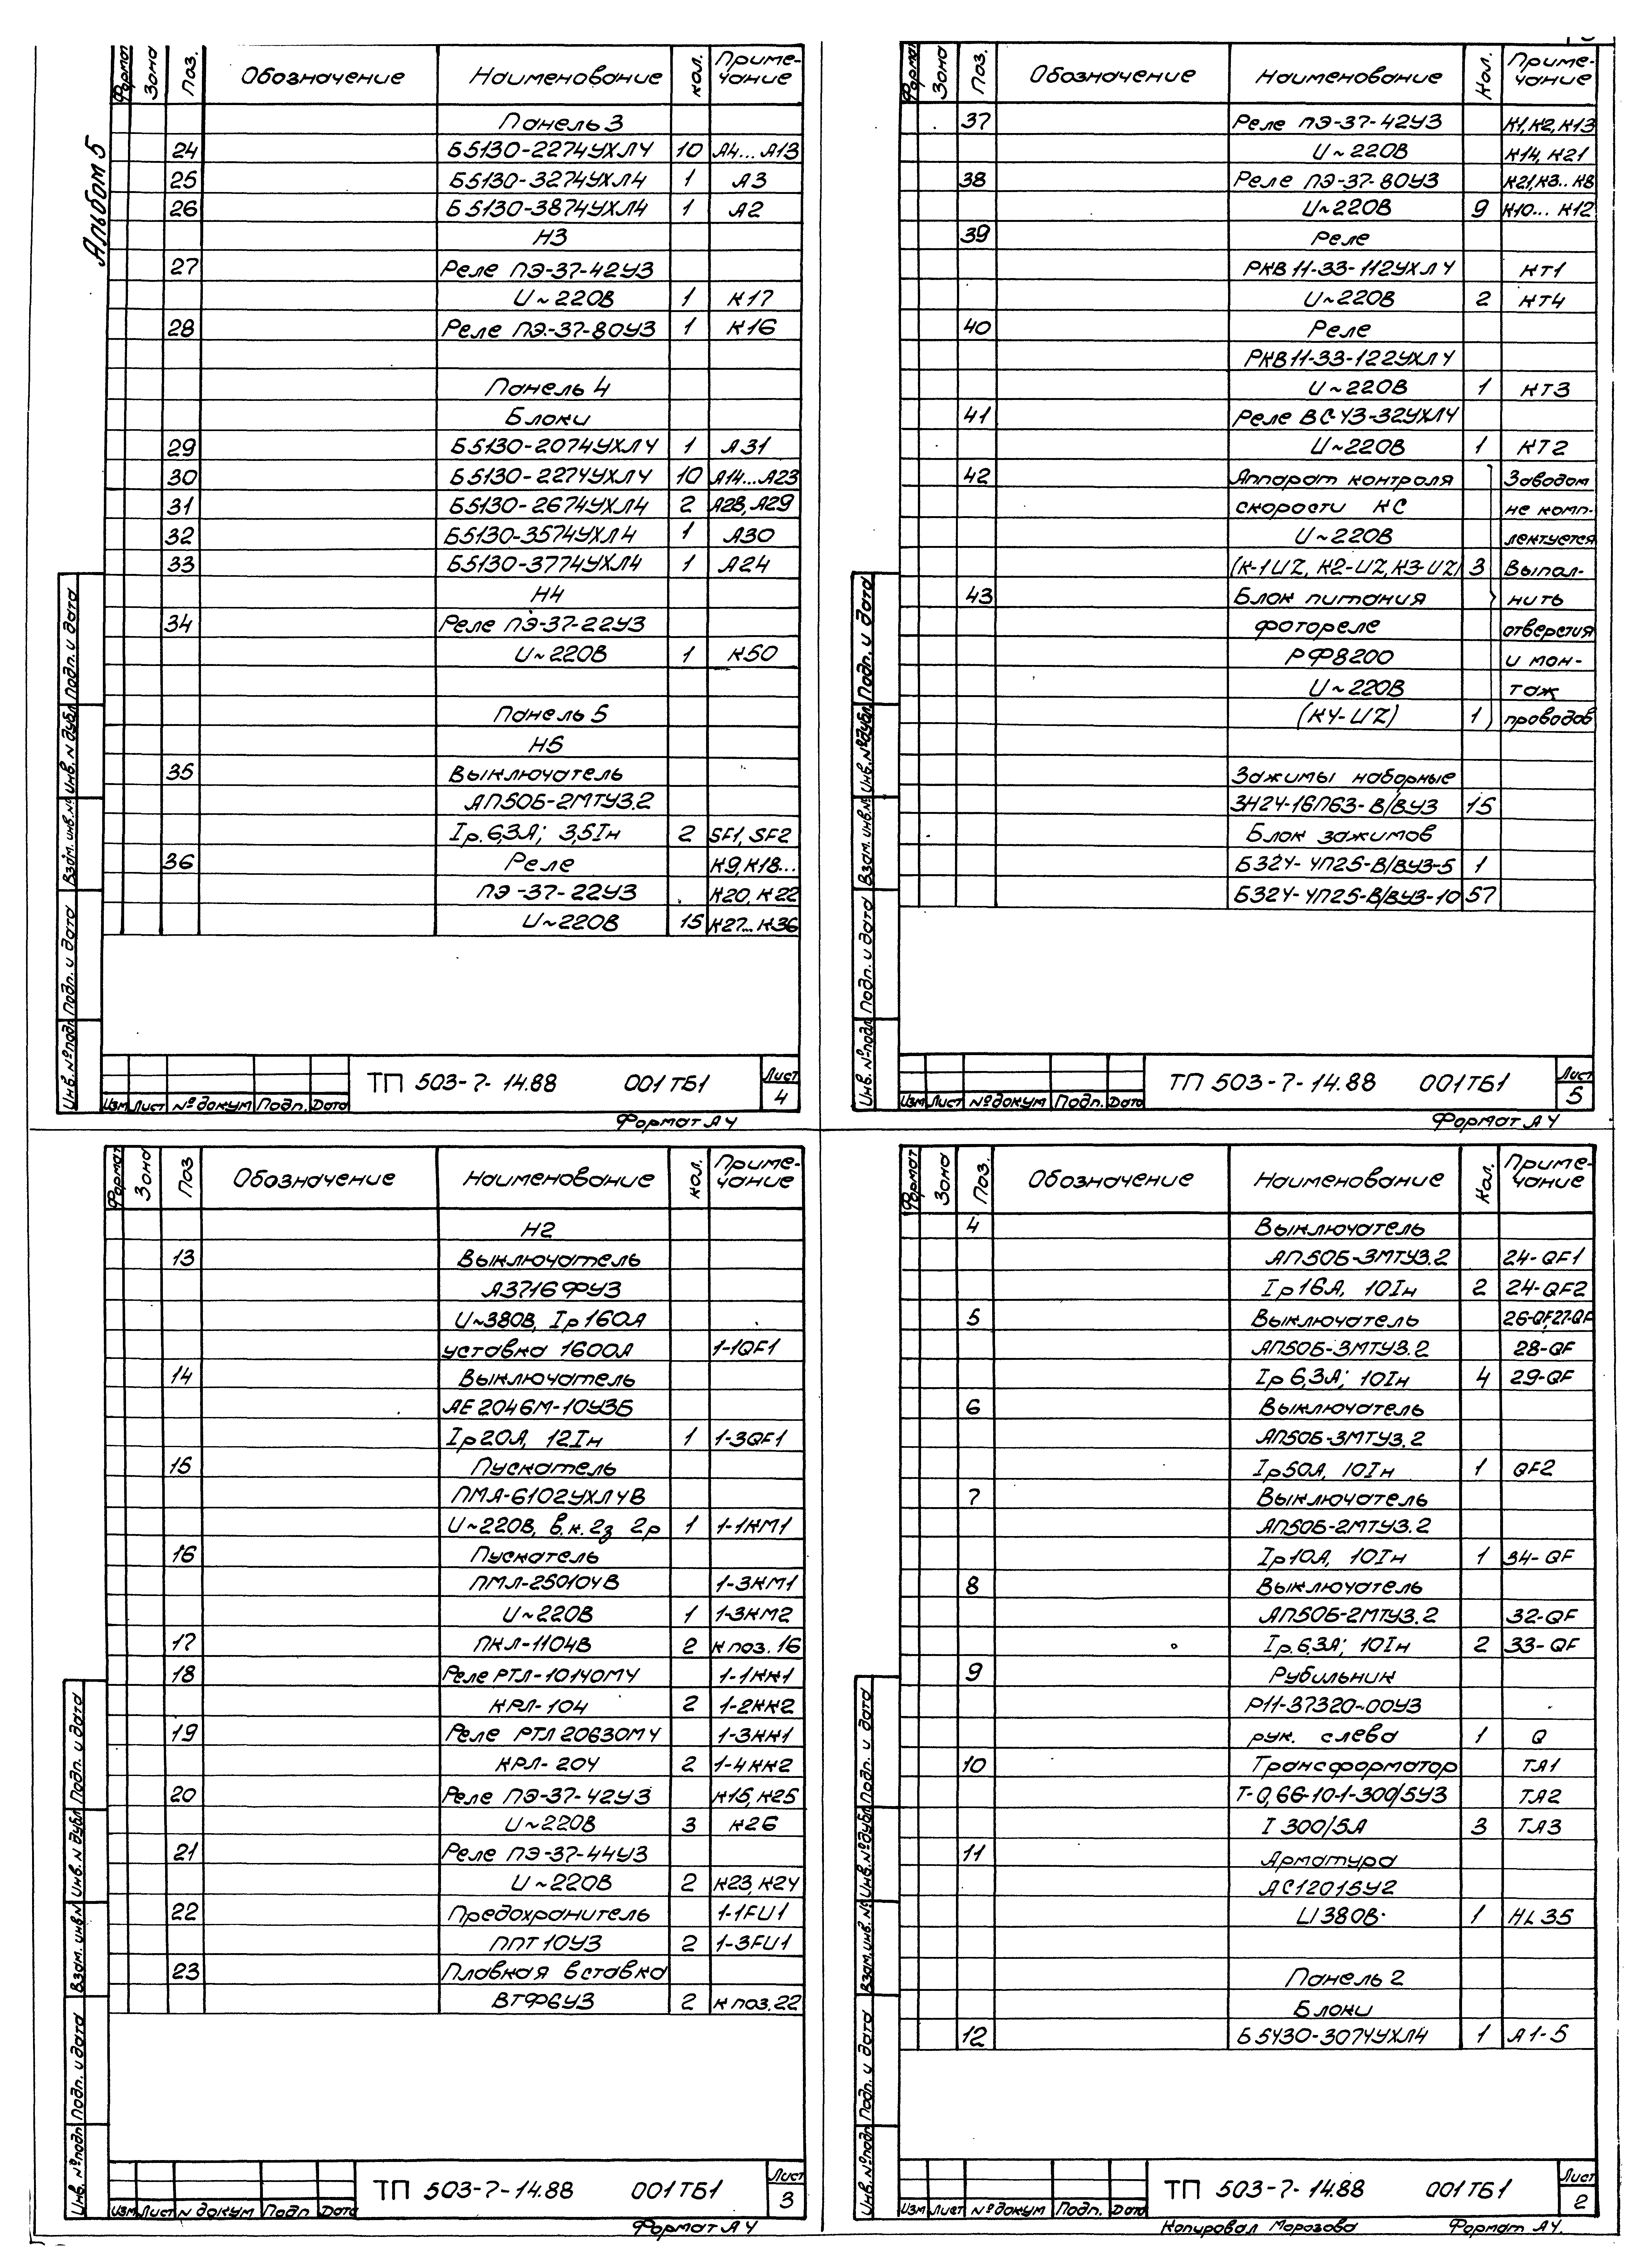 Альбом 5
Формат Зона Поз. Обозначение Наименование Кол. Приме-
чание
Панель 3
24 Б5130-2274УХЛ4 10 А4...А13
25 Б5130-3274УХЛ4 1 А3
26 Б5130-3874УХЛ4 1 А2
Н3
27 Реле ПЭ-37-42У3
U~220В 1 К17
28 Реле ПЭ-37-80У3 1 К16
Панель 4
Блоки
29 Б5130-2074УХЛ4 1 А31
30 Б5130-2274УХЛ4 10 А14...А23
31 Б5130-2674УХЛ4 2 А28, А29
32 Б5130-3574УХЛ4 1 А30
33 Б5130-3774УХЛ4 1 А24
Н4
34 Реле ПЭ-37-22У3
U~220В 1 К50
Панель 5
Н5
35 Выключатель
АП50Б-2МТУ3.2
Iр.6,3А; 3,5Iн 2 SF1, SF2
36 Реле К9, К18...
ПЭ-37-22У3 К20, К22
U~220В 15 К27...К36
Инв. № подл Подп. и дата Взам. инв. № Инв. N дубл Подп. и дата
Изм Лист № докум Подп. Дата
ТП 503-7-14.88 001ТБ1 Лист
4
Формат А4
Формат Зона Поз. Обозначение Наименование Кол. Приме-
чание
37 Реле ПЭ-37-42У3 К1, К2, К13
U~220В К14, К21
38 Реле ПЭ-37-80У3 К21, К3..К8
U~220В 9 К10...К12
39 Реле
РКВ11-33-112УХЛ4 КТ1
U~220В 2 КТ4
40 Реле
РКВ11-33-122УХЛ4
U~220В 1 КТ3
41 Реле ВС43-32УХЛ4
U~220В 1 КТ2
42 Аппарат контроля Заводом
скорости КС не комп-
U~220В лектуется
(К-1UZ, К2-UZ, К3-UZ) 3 Выпол-
43 Блок питания нить
фотореле отверстия
РФ8200 и мон-
U~220В таж
(К4-UZ) 1 проводов
Зажимы наборные
ЗН24-16П63-В/ВУ3 15
Блок зажимов
Б324-4П25-В/ВУ3-5 1
Б324-4П25-В/ВУ3-10 57
Инв. № подл Подп. и дата Взам. инв. № Инв. № дубл Подп. и дата
Изм Лист № докум Подп. Дата
ТП 503-7-14.88 001ТБ1 Лист
5
Формат А4
Формат Зона Поз Обозначение Наименование Кол. Приме-
чание
Н2
13 Выключатель
А3716ФУ3
U~380В, Iр160А
уставка 1600А 1-1QF1
14 Выключатель
АЕ2046М-10У3Б
Iр20А, 12Iн 1 1-3QF1
15 Пускатель
ПМА-6102УХЛ4В
U~220В, в.к. 2з 2р 1 1-1КМ1
16 Пускатель
ПМЛ-250104В 1-3КМ1
U~220В 1 1-3КМ2
17 ПКЛ-1104В 2 К поз. 16
18 Реле РТЛ-10140М4 1-1КК1
КРЛ-104 2 1-2КК2
19 Реле РТЛ20630М4 1-3КК1
КРЛ-204 2 1-4КК2
20 Реле ПЭ-37-42У3 К15, К25
U~220В 3 К26
21 Реле ПЭ-37-44У3
U~220В 2 К23, К24
22 Предохранитель 1-1FU1
ППТ10У3 2 1-3FU1
23 Плавкая вставка
ВТФ6У3 2 К поз. 22
Инв. № подл Подп. и дата Взам. инв N Инв. N дубл Подп. и дата
Изм Лист N докум Подп Дата
ТП 503-7-14.88 001ТБ1 Лист
3
Формат А4
Формат Зона Поз. Обозначение Наименование Кол. Приме-
чание
4 Выключатель
АП50Б-3МТУ3.2 24-QF1
Iр16А, 10Iн 2 24-QF2
5 Выключатель 26-QF, 27-QF
АП50Б-3МТУ3.2 28-QF
Iр6,3А; 10Iн 4 29-QF
6 Выключатель
АП50Б-3МТУ3.2
Iр50А, 10Iн 1 QF2
7 Выключатель
АП50Б-2МТУ3.2
Iр10А, 10Iн 1 34-QF
8 Выключатель
АП50Б-2МТУ3.2 32-QF
Iр.6,3А; 10Iн 2 33-QF
9 Рубильник
Р11-37320-00У3
рук. слева 1 Q
10 Трансформатор ТА1
Т-0,66-10-1-300/5У3 ТА2
I 300/5А 3 ТА3
11 Арматура
АС12015У2
U380В 1 HL35
Панель 2
Блоки
12 Б5430-3074УХЛ4 1 А1-5
Инв. № подл Подп. и дата Взам. инв. № Инв. № дубл Подп. и дата
Изм Лист № докум Подп. Дата
ТП 503-7-14.88 001ТБ1 Лист
2
Копировал Морозова Формат А4.